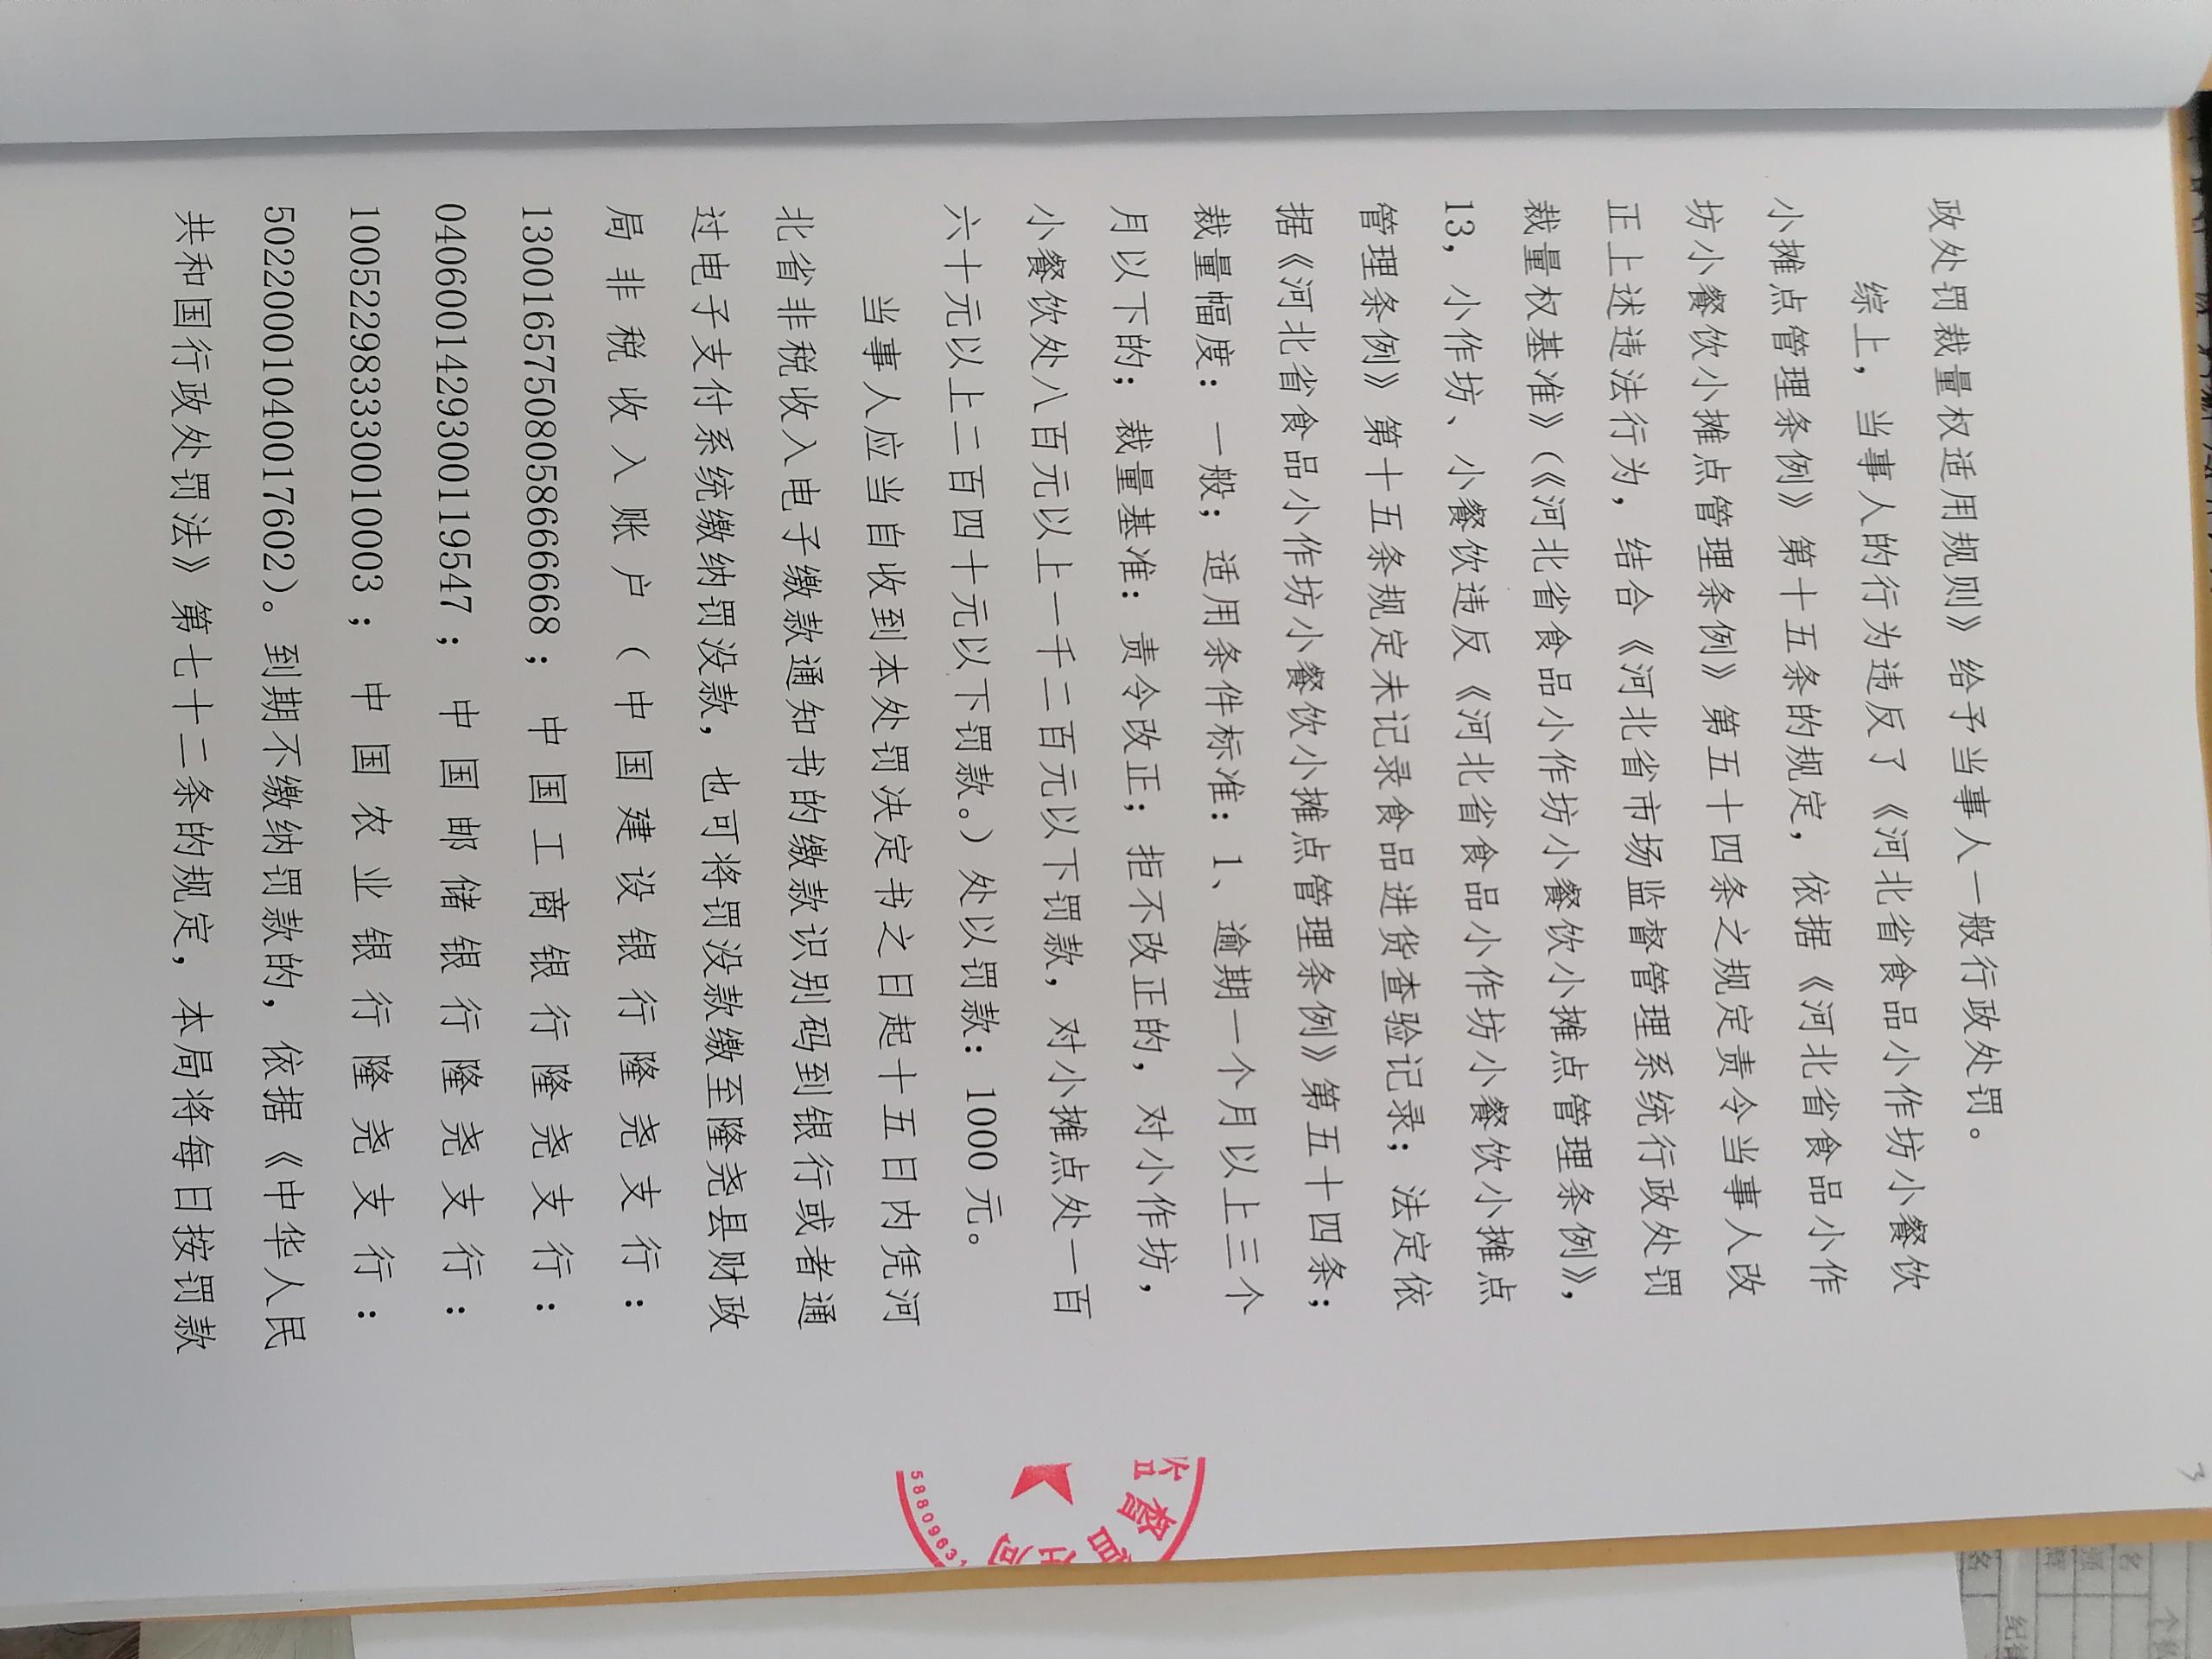 政处罚裁量权适用规则》给予当事人一般行政处罚。
综上，当事人的行为违反了《河北省食品小作坊小餐饮
小摊点管理条例》第十五条的规定，依据《河北省食品小作
坊小餐饮小摊点管理条例》第五十四条之规定责令当事人改
正上述违法行为，结合《河北省市场监督管理系统行政处罚
裁量权基准》（《河北省食品小作坊小餐饮小摊点管理条例》，
13，小作坊、小餐饮违反《河北省食品小作坊小餐饮小摊点
管理条例》第十五条规定未记录食品进货查验记录；法定依
据《河北省食品小作坊小餐饮小摊点管理条例》第五十四条；
裁量幅度：一般；适用条件标准：1、逾期一个月以上三个
月以下的；裁量基准：责令改正；拒不改正的，对小作坊，
小餐饮处八百元以上一千二百元以下罚款，对小摊点处一百
六十元以上二百四十元以下罚款。）处以罚款：1000元。
当事人应当自收到本处罚决定书之日起十五日内凭河
北省非税收入电子缴款通知书的缴款识别码到银行或者通
过电子支付系统缴纳罚没款，也可将罚没款缴至隆尧县财政
局非税收入账户（中国建设银行隆尧支行：
13001657508058666668；中国工商银行隆尧支行：
0406001429300119547；中国邮储银行隆尧支行：
100522983330010003；中国农业银行隆尧支行：
50220001040017602）。到期不缴纳罚款的，依据《中华人民
共和国行政处罚法》第七十二条的规定，本局将每日按罚款
督
5880963
3
名